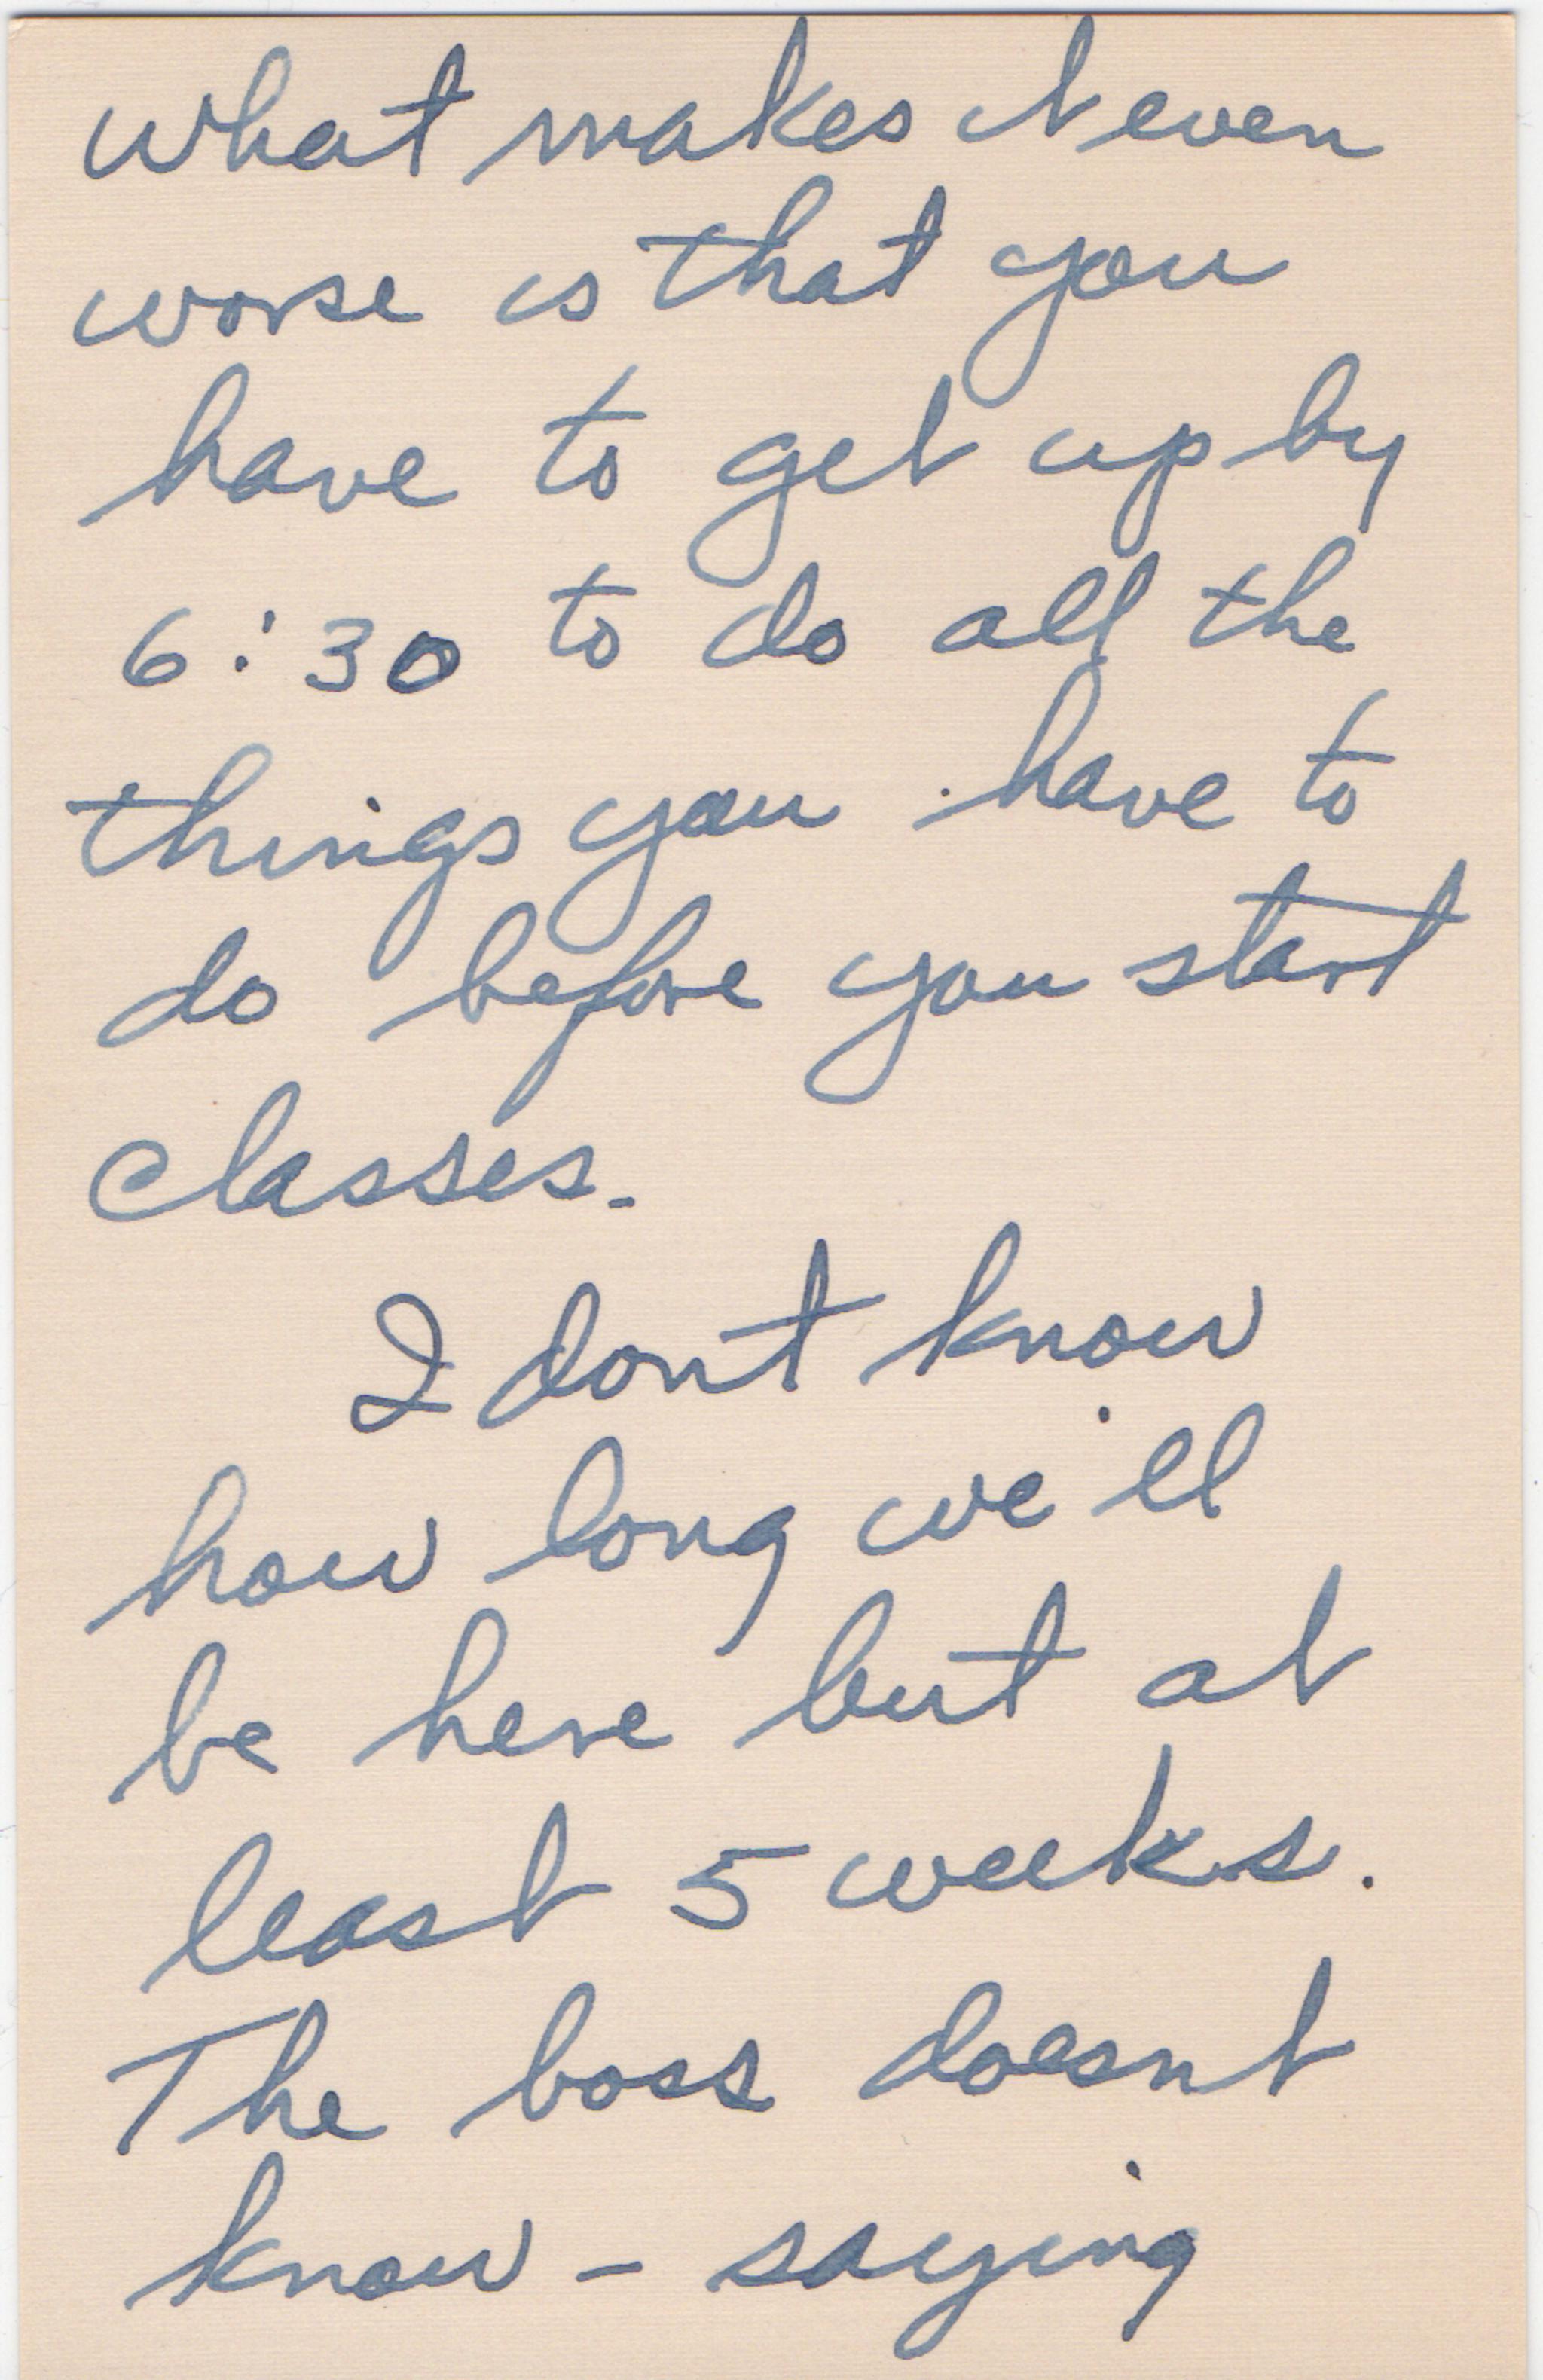 What makes it even
worse is that you
have to get up by
6:30 to do all the
things you have to
do before you start
classes.
I dont know
how long we'll
be here but at
least 5 weeks.
The boss doesnt
know - saying